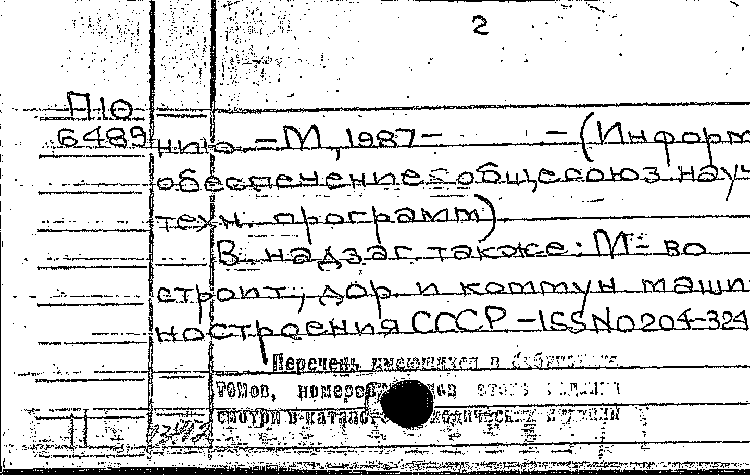 2
П10
6489
нию. – М, 1987– – (Информ
обеспечение общесоюз. науч
техн. программ)
В надзаг. также: М-во
строит., дор. и коммун. маши
ностроения СССР – ISSN 0204-324
Перечень имеющихся в библиотеке
томов, номеров этого издания
смотри в каталоге